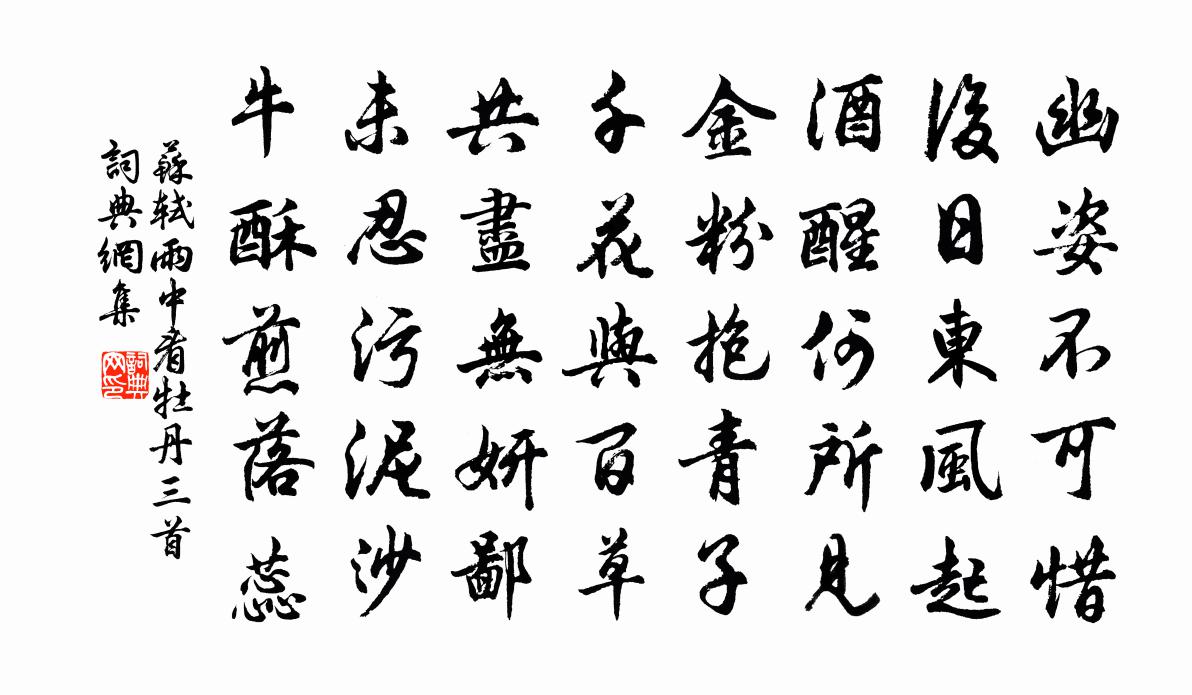 幽姿不可惜
後日東風起
酒醒何所見
金粉抱青子
千花與百草
共盡無妍鄙
未忍污泥沙
牛酥煎落蕊
蘇軾雨中看牡丹三首
詞典網集
詞典網印